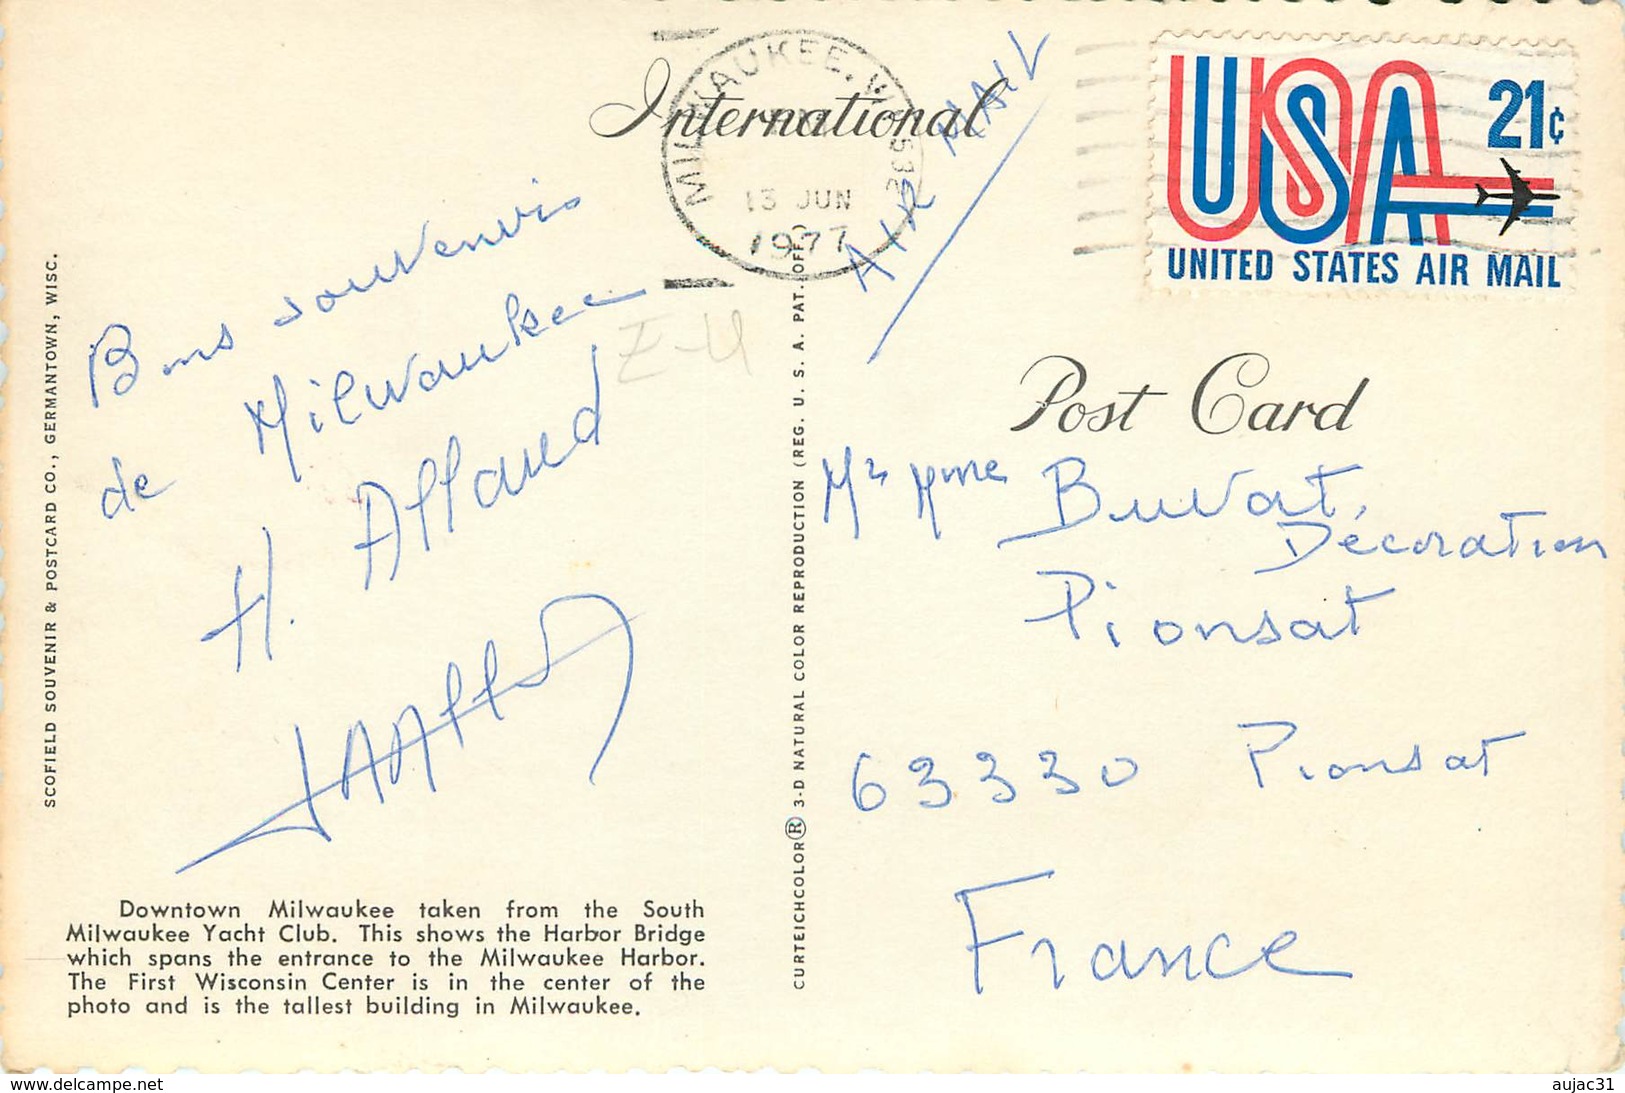 International
MILWAUKEE, WIS 532
13 JUN
1977
AIR MAIL
USA 21¢
UNITED STATES AIR MAIL
Bons souvenirs
de Milwaukee
H. Allaud
Z-4
Post Card
Mr Mme Buvat,
Décoration
Pionsat
63330 Pionsat
France
SCOFIELD SOUVENIR & POSTCARD CO., GERMANTOWN, WISC.
CURTEICHCOLOR® 3-D NATURAL COLOR REPRODUCTION (REG. U. S. A. PAT. OFF.)
Downtown Milwaukee taken from the South
Milwaukee Yacht Club. This shows the Harbor Bridge
which spans the entrance to the Milwaukee Harbor.
The First Wisconsin Center is in the center of the
photo and is the tallest building in Milwaukee.
www.delcampe.net
aujac31